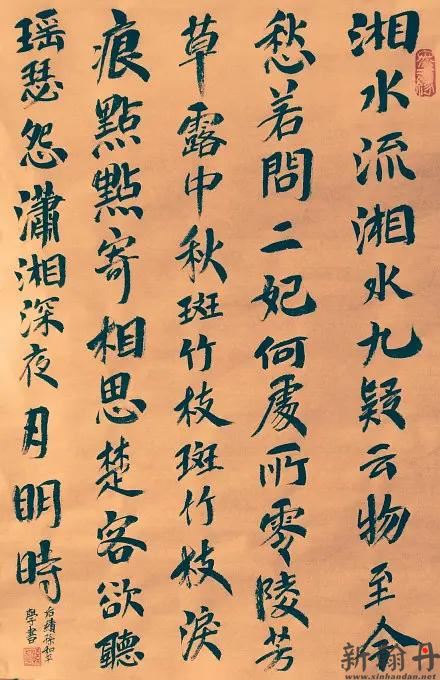 湘水流湘水九疑云物至今
愁若問二妃何處所零陵芳
草露中秋斑竹枝斑竹枝淚
痕點點寄相思楚客欲聽
瑶瑟怨瀟湘深夜月明時
學書
新翰丹
www.xinhandan.net